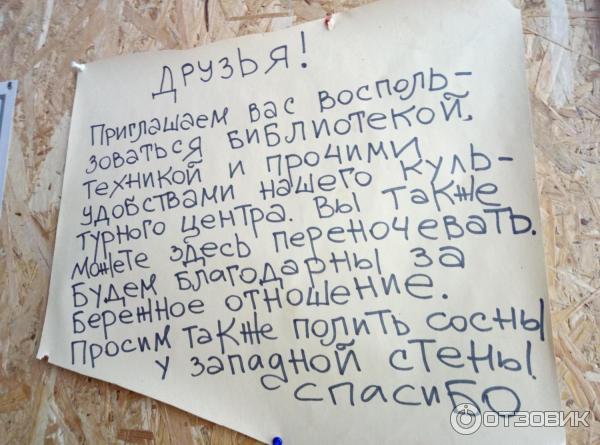 Друзья!
Приглашаем вас восполь-
зоваться библиотекой,
техникой и прочими
удобствами нашего куль-
турного центра. Вы также
можете здесь переночевать.
Будем благодарны за
бережное отношение.
Просим также полить сосны
у западной стены.
Спасибо
ОТЗОВИК